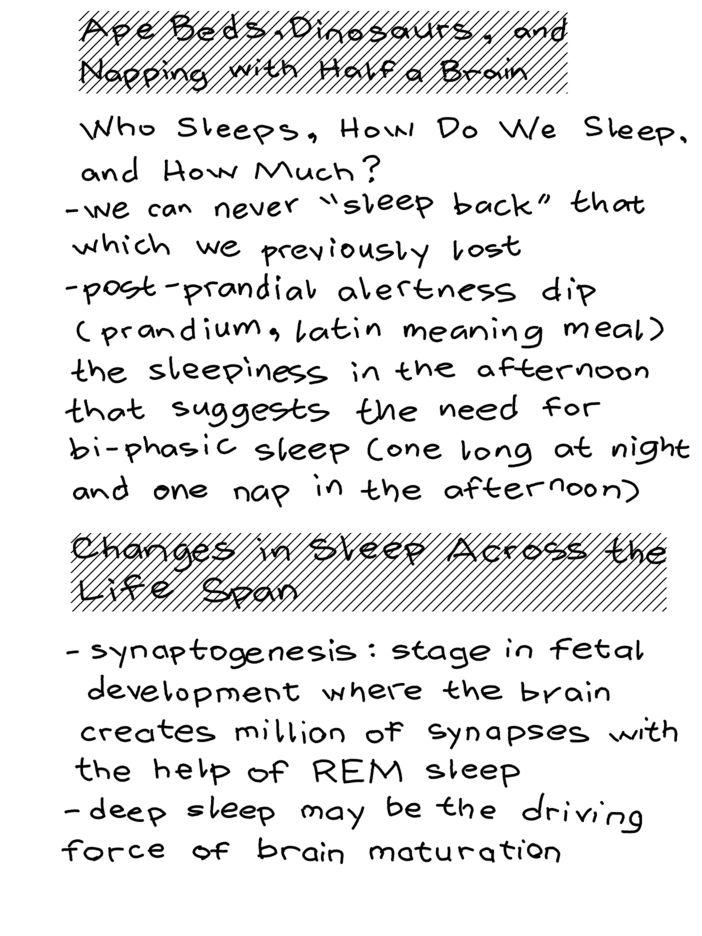 Ape Beds, Dinosaurs, and
Napping with Half a Brain
Who Sleeps, How Do We Sleep,
and How Much?
-we can never "sleep back" that
which we previously lost
-post-prandial alertness dip
(prandium, latin meaning meal)
the sleepiness in the afternoon
that suggests the need for
bi-phasic sleep (one long at night
and one nap in the afternoon)
Changes in Sleep Across the
Life Span
- synaptogenesis: stage in fetal
development where the brain
creates million of synapses with
the help of REM sleep
- deep sleep may be the driving
force of brain maturation